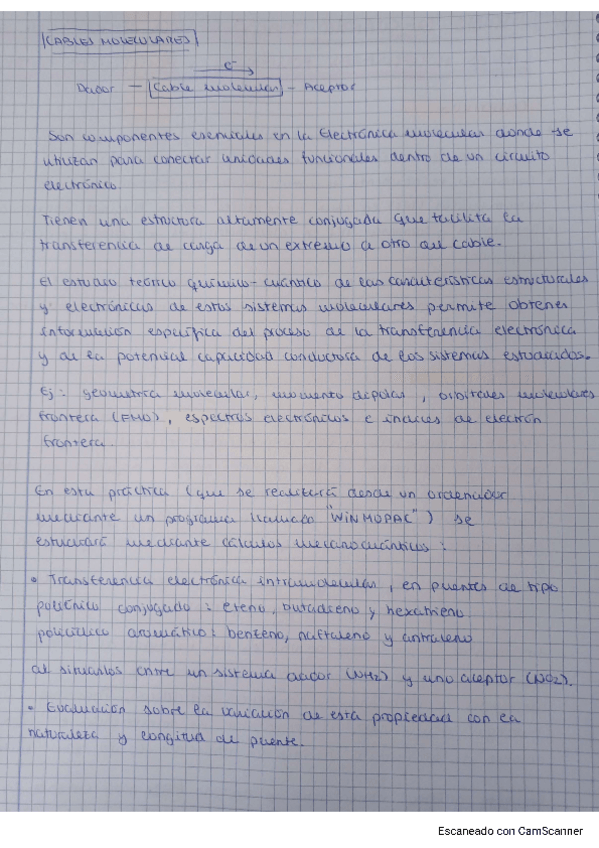 CABLES MOLECULARES
e-
Dador - Cable molecular - Aceptor
Son componentes esenciales en la Electrónica molecular donde se
utilizan para conectar unidades funcionales dentro de un circuito
electrónico.
Tienen una estructura altamente conjugada que facilita la
transferencia de carga de un extremo a otro del cable.
El estudio teórico químico-cuántico de las características estructurales
y electrónicas de estos sistemas moleculares permite obtener
información específica del proceso de la transferencia electrónica
y de la potencial capacidad conductora de los sistemas estudiados.
Ej: geometría molecular, momento dipolar, orbitales moleculares
frontera (FMO), espectros electrónicos e índices de electrón
frontera.
En esta práctica (que se realizará desde un ordenador
mediante un programa llamado "WINMOPAC") se
estudiará mediante cálculos mecanocuánticos:
• Transferencia electrónica intramolecular, en puentes de tipo
poliénico conjugado: eteno, butadieno y hexatrieno
policíclico aromático: benceno, naftaleno y antraceno
al situarlos entre un sistema dador (NH2) y uno aceptor (NO2).
• Evaluación sobre la variación de esta propiedad con la
naturaleza y longitud de puente.
Escaneado con CamScanner